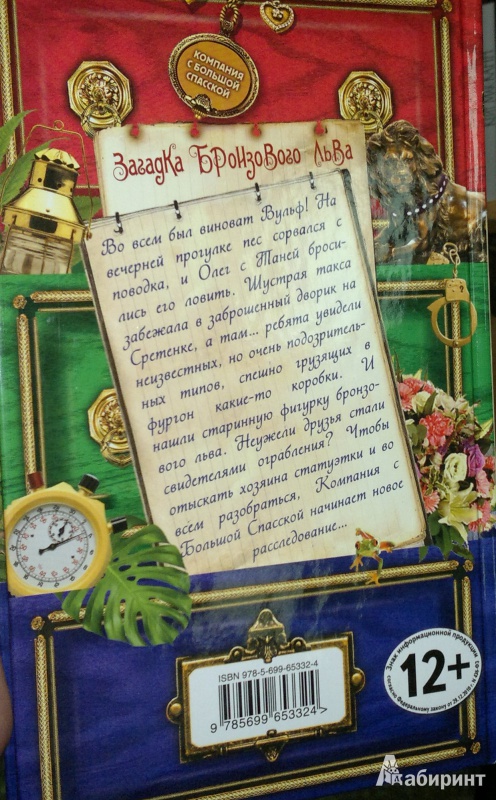 КОМПАНИЯ
С БОЛЬШОЙ
СПАССКОЙ
Загадка Бронзового льва
Во всем был виноват Вульф! На
вечерней прогулке пес сорвался с
поводка, и Олег с Таней броси-
лись его ловить. Шустрая такса
забежала в заброшенный дворик на
Сретенке, а там... ребята увидели
неизвестных, но очень подозритель-
ных типов, спешно грузящих в
фургон какие-то коробки. И
нашли старинную фигурку бронзо-
вого льва. Неужели друзья стали
свидетелями ограбления? Чтобы
отыскать хозяина статуэтки и во
всем разобраться, Компания с
Большой Спасской начинает новое
расследование...
ISBN 978-5-699-65332-4
9 785699 653324 >
Знак информационной продукции
12+
согласно Федеральному закону от
Лабиринт